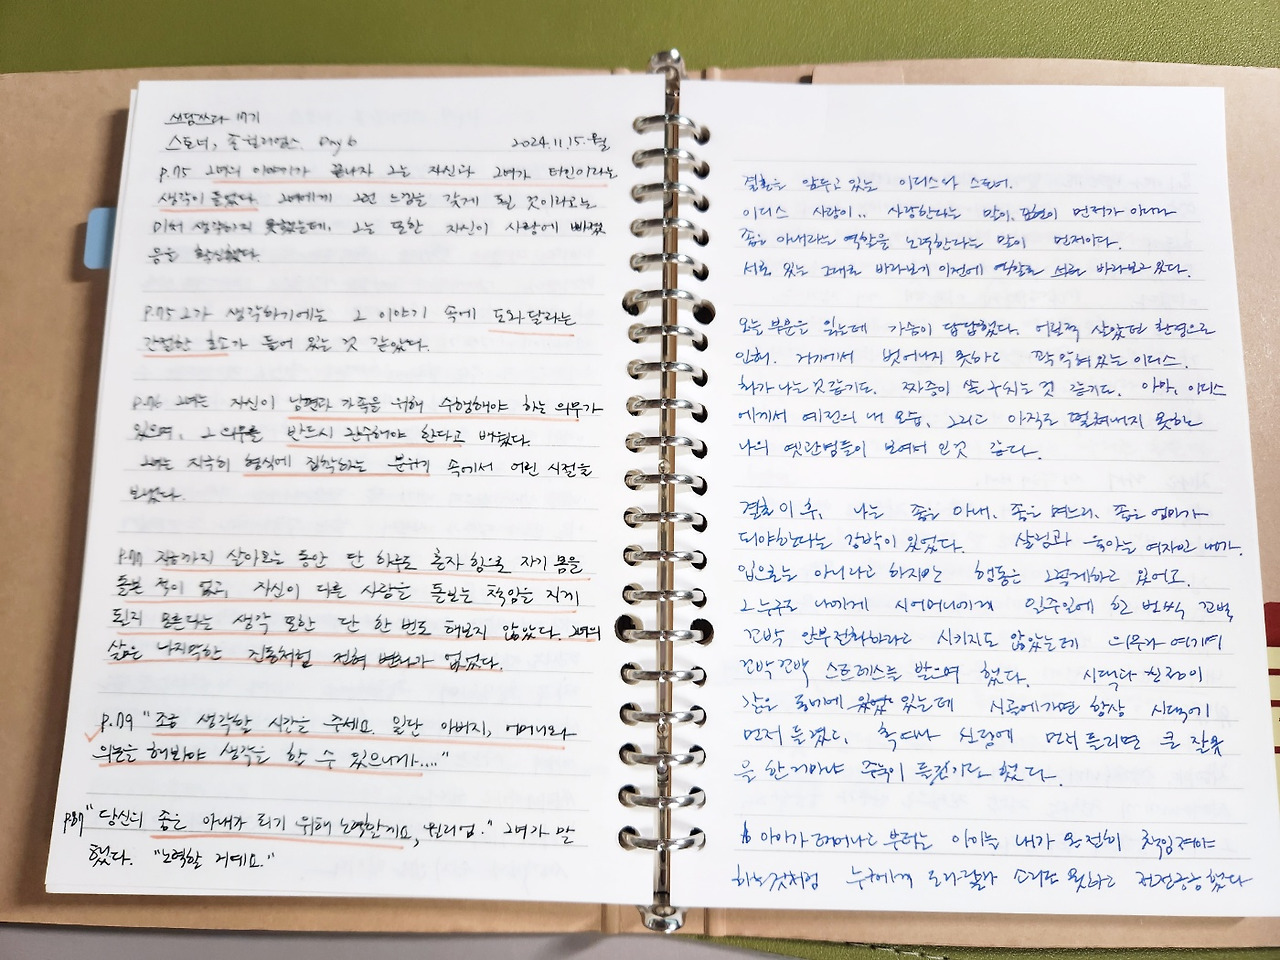 쓰담쓰다 17기
스토너, 존 윌리엄스. Day 6 2024.11.15.월
p.75 그녀의 이야기가 끝나자 그는 자신과 그녀가 타인이라는
생각이 들었다. 그녀에게 그런 느낌을 갖게 될 것이라고는
미처 생각하지 못했는데, 그는 또한 자신이 사랑에 빠졌
음을 확신했다.
p.75 그가 생각하기에는 그 이야기 속에 도와달라는
간절한 호소가 들어 있는 것 같았다.
p.76 그녀는 자신이 남편과 가족을 위해 수행해야 하는 의무가
있으며, 그 의무를 반드시 완수해야 한다고 배웠다.
그녀는 지극히 형식에 집착하는 분위기 속에서 어린 시절을
보냈다.
p.77 지금까지 살아오는 동안 단 하루도 혼자 힘으로 자기 몸을
돌본 적이 없고, 자신이 다른 사람을 돌보는 책임을 지게
될지 모른다는 생각 또한 단 한 번도 해보지 않았다. 그녀의
삶은 나지막한 진동처럼 전혀 변화가 없었다.
p.79 "조금 생각할 시간을 주세요. 일단 아버지, 어머니와
의논을 해봐야 생각을 할 수 있으니까...."
p.87 "당신의 좋은 아내가 되기 위해 노력할게요, 윌리엄." 그녀가 말
했다. "노력할 거예요."
결혼을 앞두고 있는 이디스와 스토너.
이디스 사랑이.. 사랑한다는 말이, 표현이 먼저가 아니라
좋은 아내라는 역할을 노력한다는 말이 먼저이다.
서로 있는 그대로 바라보기 이전에 역할로 서로 바라보고 있다.
오늘 부분은 읽는데 가슴이 답답했다. 어릴적 살았던 환경으로
인해. 거기에서 벗어나지 못하고 꽉 막혀있는 이디스.
화가 나는 것 같기도. 짜증이 솟구치는 것 같기도. 아마, 이디스
에게서 예전의 내 모습, 그리고 아직도 떨쳐내지 못하는
나의 옛관념들이 보여서 인것 같다.
결혼 이후, 나는 좋은 아내, 좋은 며느리, 좋은 엄마가
되야한다는 강박이 있었다. 살림과 육아는 여자인 내가.
입으로는 아니라고 하지만 행동은 그렇게하고 있어도.
그 누구도 나에게 시어머니에게 일주일에 한 번씩 꼬박
꼬박 안부전화하라고 시키지도 않았는데 의무가 여기며
꼬박꼬박 스트레스를 받으며 했다. 시댁과 친정이
같은 동네에 있었 있는데 시골에가면 항상 시댁에
먼저 들렸고, 혹여나 친정에 먼저 들리면 큰 잘못
을 한거마냥 죽죽이 들렸기도 했다.
아이가 태어나고 부터는 아이는 내가 온전히 책임져야
하는것처럼 누구에게 도와달라 소리도 못하고 전전긍긍했다